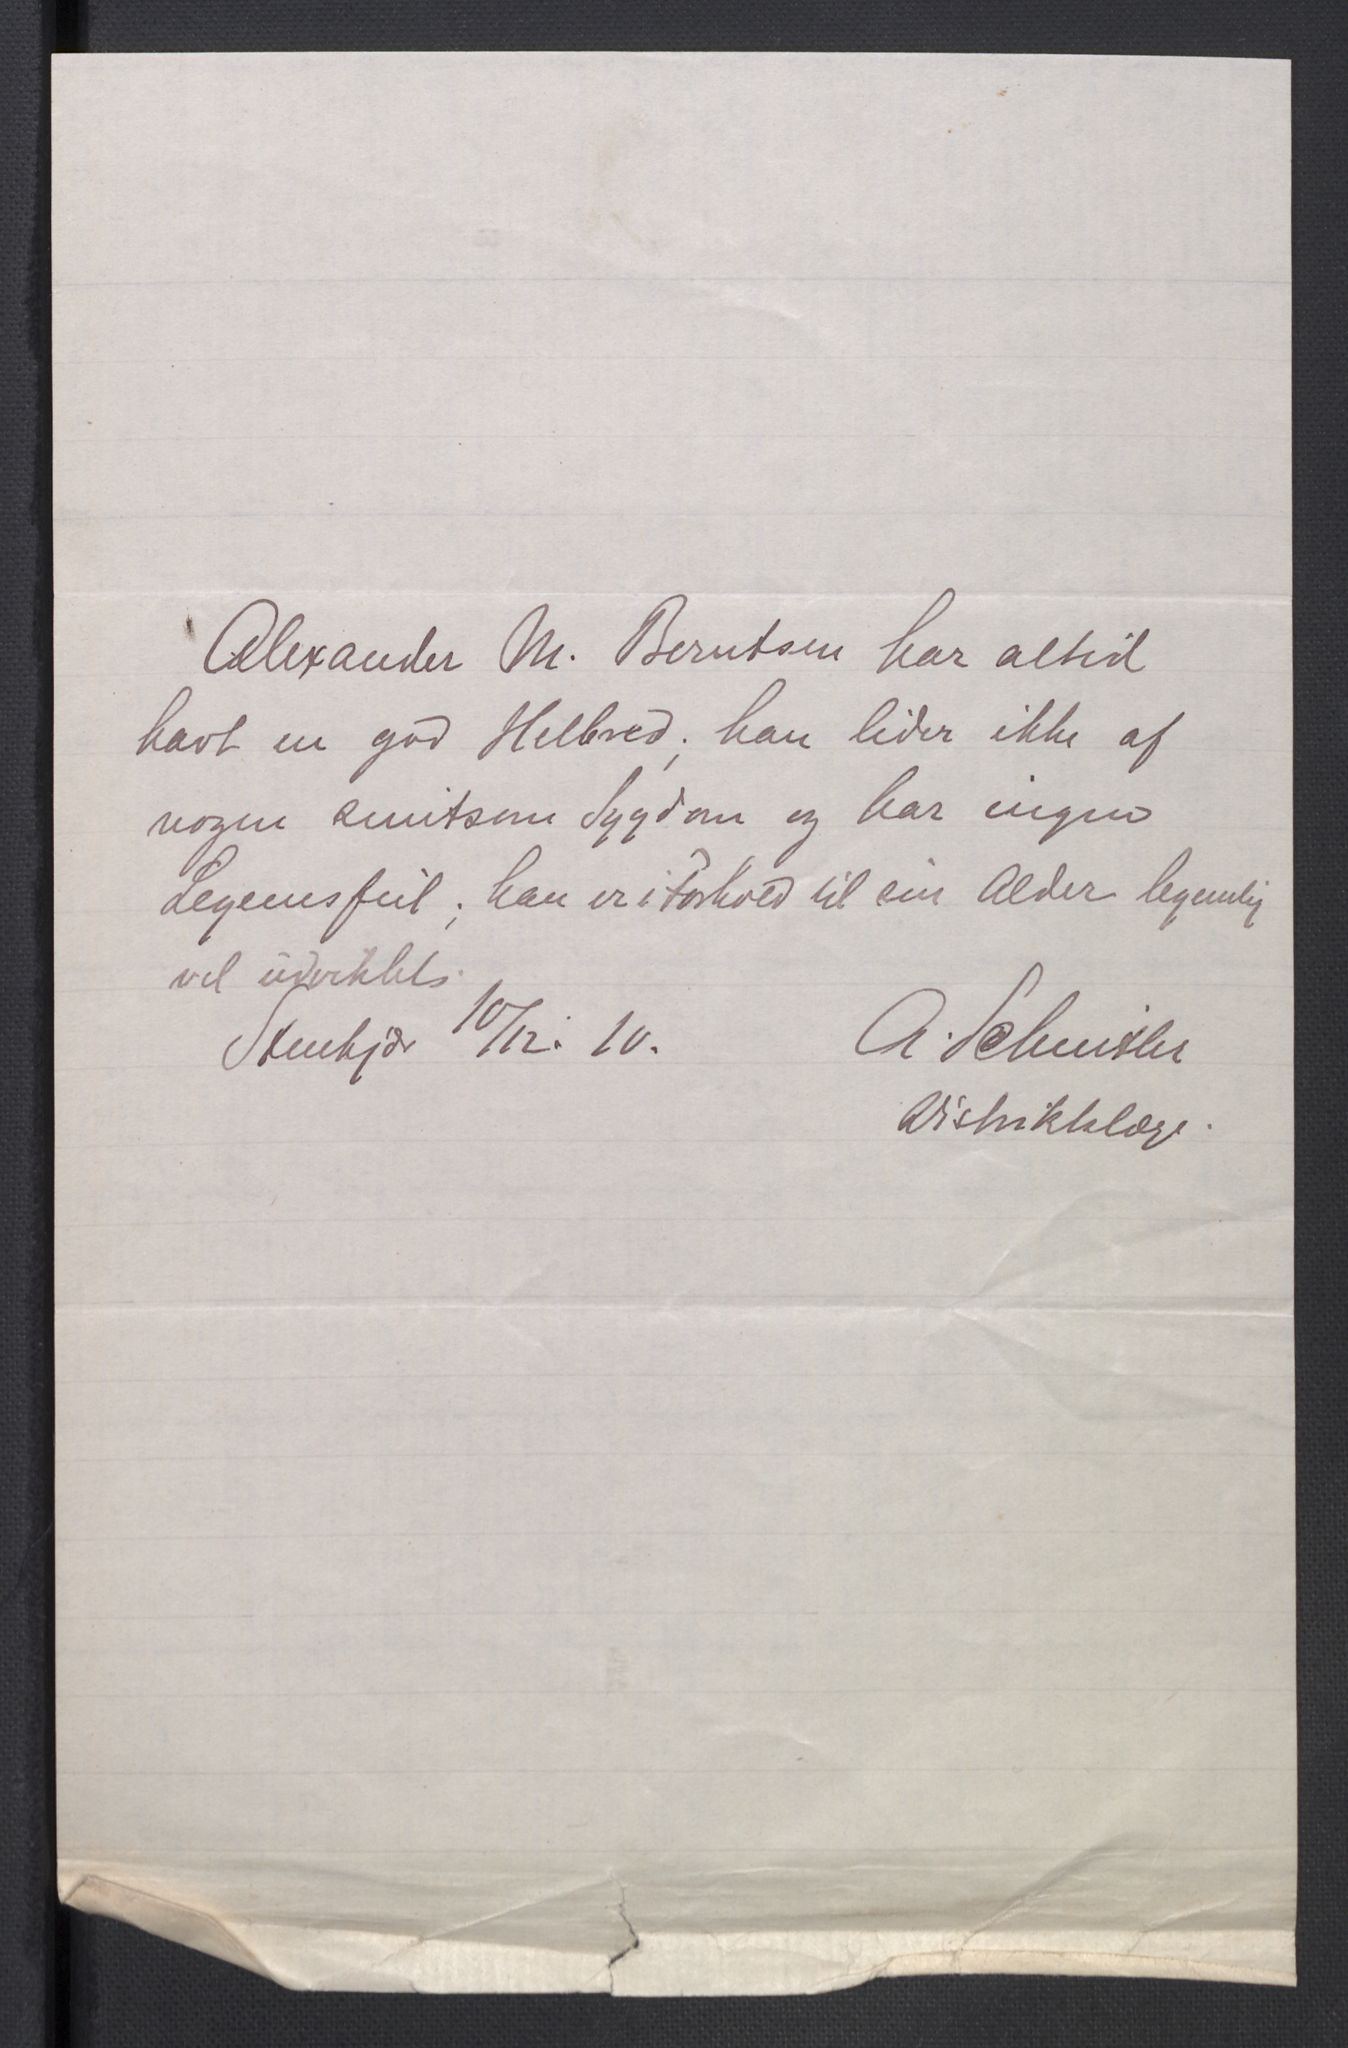 Alexander M. Berntsen har altid
havt en god Helbred; han lider ikke af
nogen smitsom Sygdom og har ingen
Legemsfeil; han er i Forhold til sin Alder legemlig
vel udviklet.
Stenkjær 10/12. 10.
A. Schmidler
Distriktslæge.